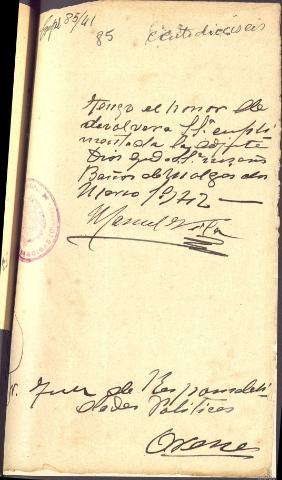 85/41
85 cientodieciseis
Tengo el honor de
devolver a S.Sª cumpli
mentada la adjunta
Dios gde a S.Sª muchos
Baños de Molgas dos
Marzo 1942 —
Manuel
Juez de Responsabili
dades Politicas
Orense